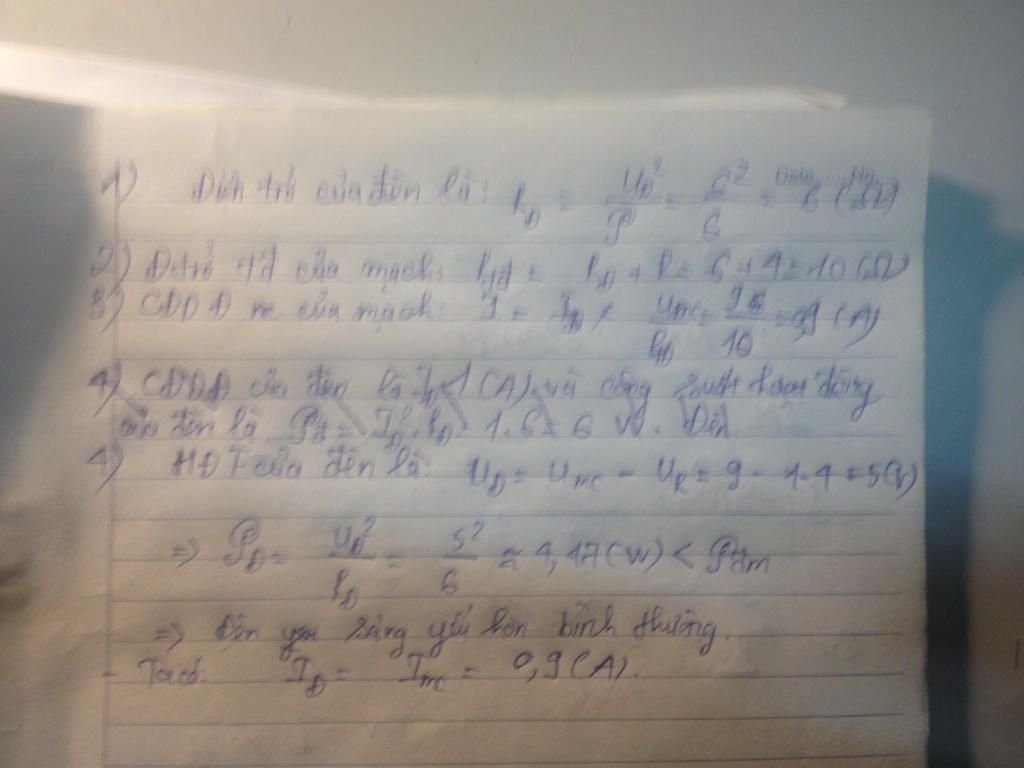 1) Điện trở của đèn là: R_Đ = U_Đ²/P = 6²/6 = 6 (Ω)
2) Đ trở tđ của mạch: R_tđ = R_Đ + R = 6 + 4 = 10 (Ω)
3) CĐDĐ m của mạch: I = U_mc/R_tđ = 9/10 = 0,9 (A)
4) CĐDĐ của đèn là I_Đ = 1 (A) và công suất hoạt động
của đèn là P_đ = I_Đ².R_Đ = 1.6 = 6 W. Đèn
4) HĐT của đèn là: U_Đ = U_mc - U_R = 9 - 1.4 = 5 (V)
=> P_Đ = U_Đ²/R_Đ = 5²/6 ≈ 4,17 (W) < P_đm
=> Đèn sáng yếu hơn bình thường.
- Ta có: I_Đ = I_mc = 0,9 (A).